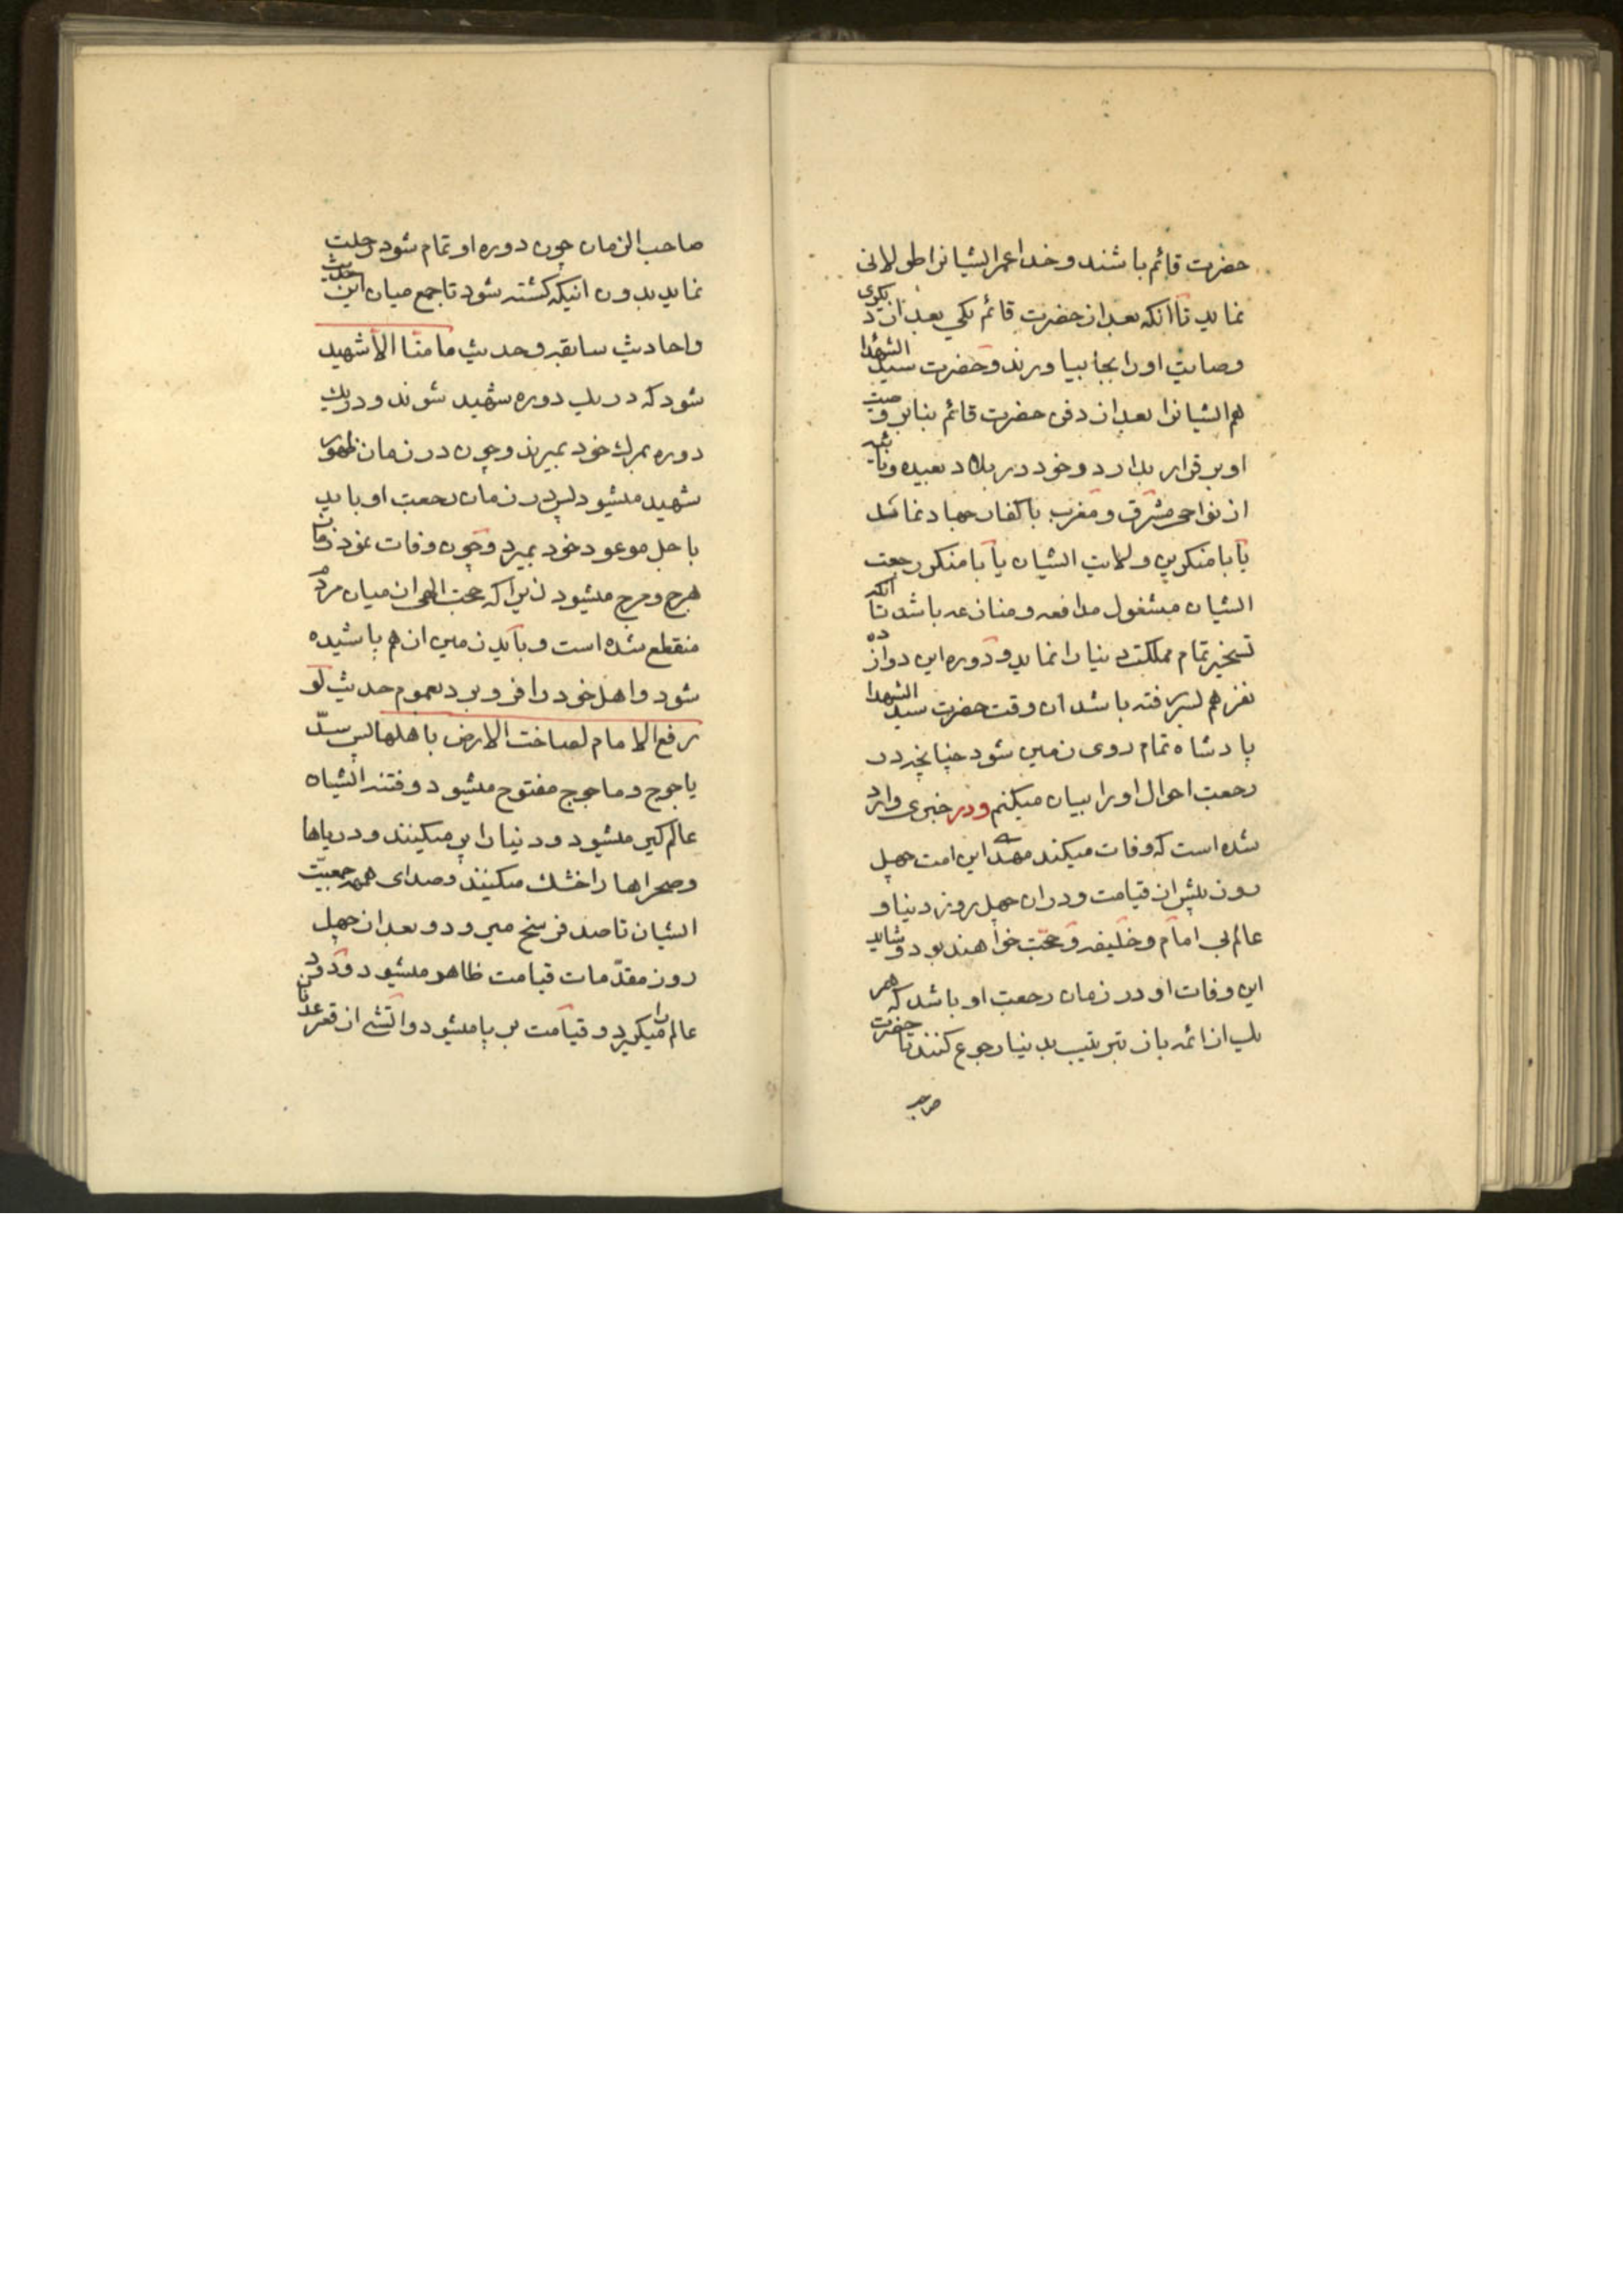 حضرت قائم باشند و خدا عمر ایشانرا طولانی
نماید تا آنکه بعد از حضرت قائم یکی بعد از دیگری
وصایت او را بجا بیاورند و حضرت سید الشهدا
هم ایشانرا بعد از دفن حضرت قائم بنابر وصیت
او برقرار بدارد و خود در بلاد بعیده و
از نواحی مشرق و مغرب با کفار جهاد نماید
یا با منکرین ولایت ایشان یا با منکر رجعت
ایشان مشغول مدافعه و منازعه باشد تا آنکه
تسخیر تمام مملکت دنیا را نماید و دوره این دوازده
نفر هم بسر رفته باشد ان وقت حضرت سید الشهدا
پادشاه تمام روی زمین شود چنانچه در
رجعت احوال او را بیان میکنم و در خبری وارد
شده است که وفات میکند مهدی این امت چهل
روز پیش از قیامت و در ان چهل روز دنیا و
عالم بی امام و خلیفه و حجّت خواهند بود و شاید
این وفات او در زمان رجعت او باشد که هر
یک از ائمه باز بترتیب بدنیا رجوع کنند تا حضرت
صاحب
صاحب الزمان چون دوره او تمام شود رحلت
نماید بدون انیکه کشته شود تا جمع میان این حدیث
و احادیث سابقه و حدیث ما منّا الّا شهید
شود که در یک دوره شهید شوند و در یک
دوره بمرک خود بمیرند و چون در زمان ظهور
شهید میشود پس در زمان رجعت او باید
باجل موعود خود بمیرد و چون وفات نمود زمان
هرج و مرج میشود زیرا که حجت الهی از میان مردم
منقطع شده است و باید زمین از هم پاشیده
شود و اهل خود را فرو برد بعموم حدیث لو
رفع الامام لساخت الارض باهلها پس سدّ
یاجوج و ماجوج مفتوح میشود و فتنه ایشان
عالم کیر میشود و دنیا را پر میکینند و دریاها
و صحراها را خشک میکینند و صدای همهمه جمعیّت
ایشان تا صد فرسخ میرود و بعد از چهل
روز مقدّمات قیامت ظاهر میشود و دود
عالم را میکیرد و قیامت بر پا میشود و آتشی از قعر عدن